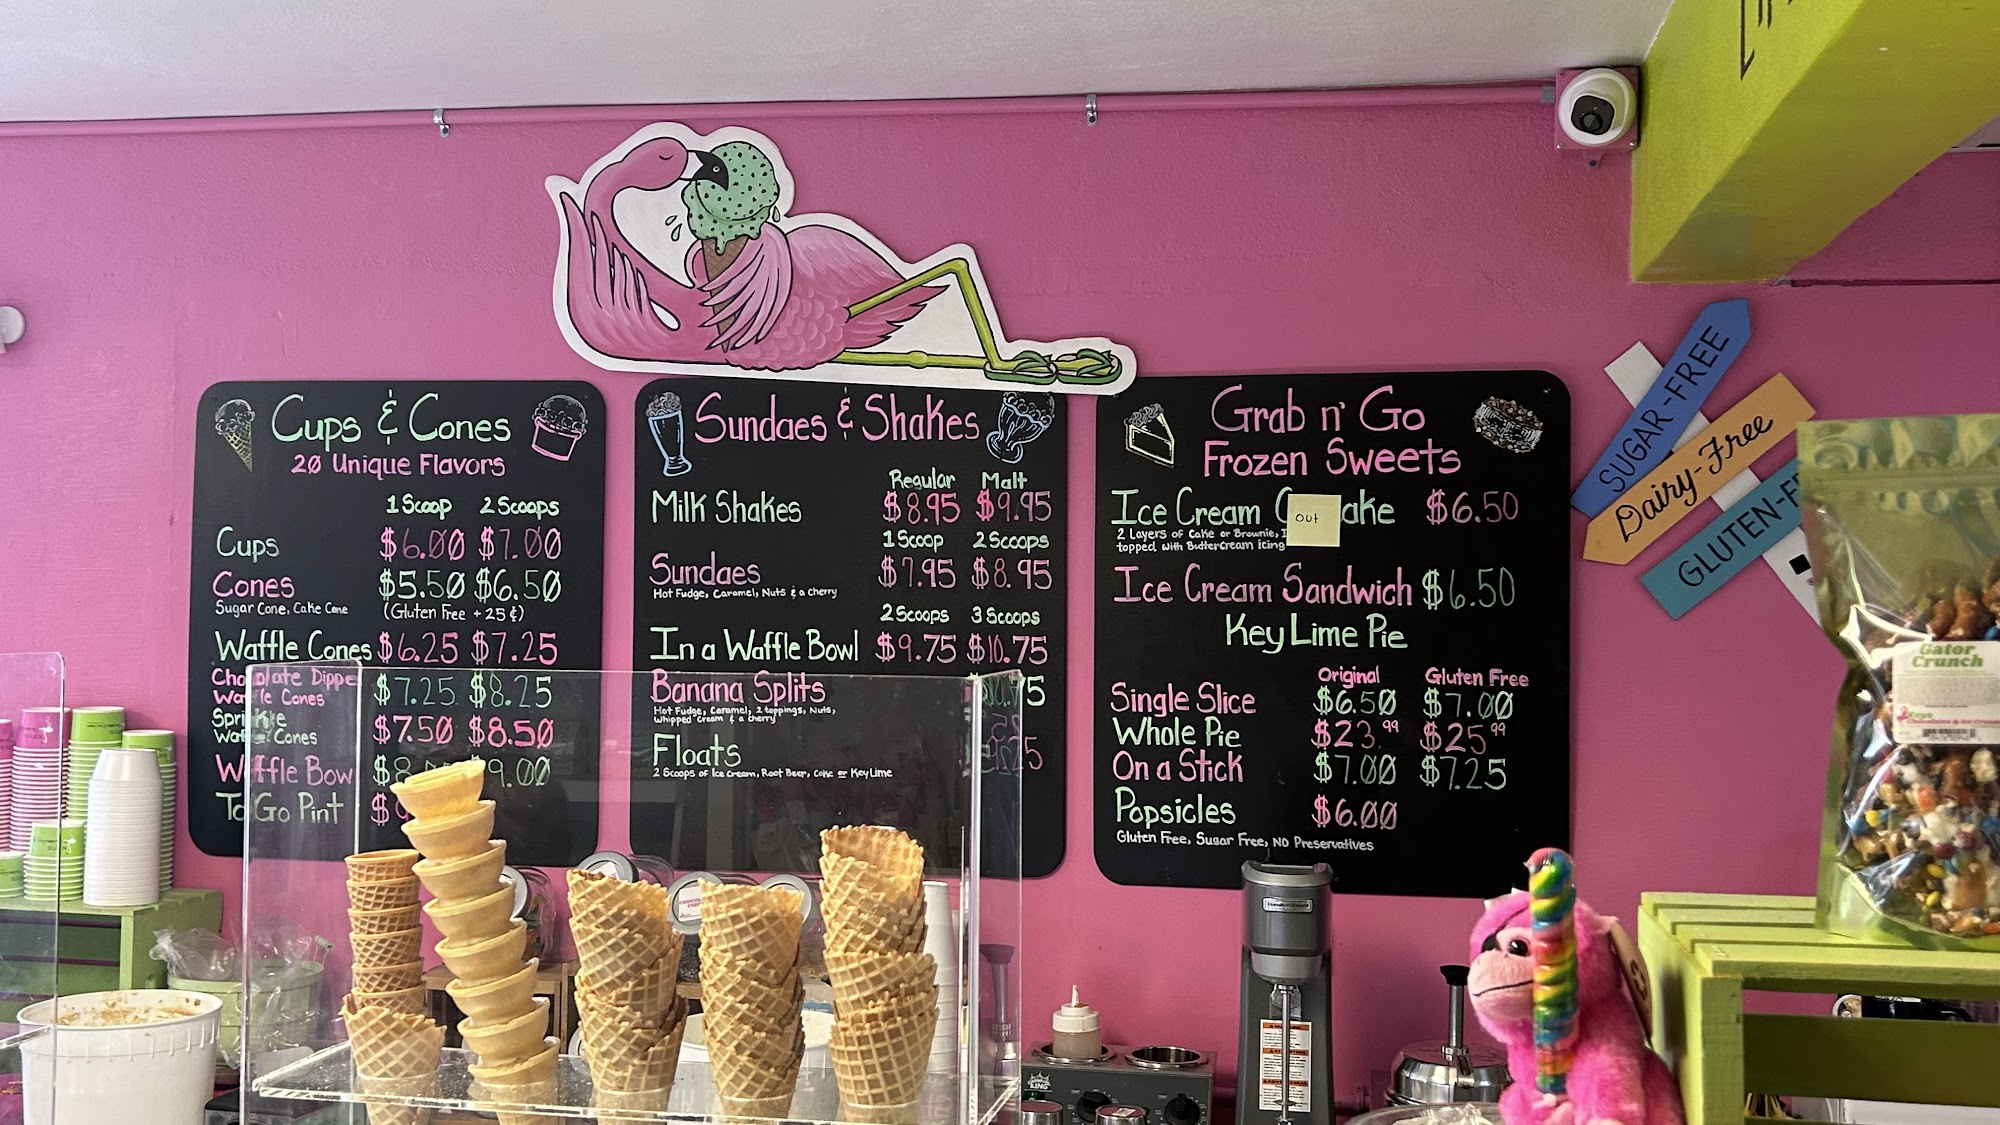 Cups & Cones
20 Unique Flavors
1 Scoop 2 Scoops
Cups $6.00 $7.00
Cones $5.50 $6.50
Sugar Cone, Cake Cone (Gluten Free + 25¢)
Waffle Cones $6.25 $7.25
Chocolate Dipped
Waffle Cones $7.25 $8.25
Sprinkle
Waffle Cones $7.50 $8.50
Waffle Bowl 9.00
To Go Pint $
Sundaes & Shakes
Regular Malt
Milk Shakes $8.95 $9.95
1 Scoop 2 Scoops
Sundaes $7.95 $8.95
Hot Fudge, Caramel, Nuts & a cherry
2 Scoops 3 Scoops
In a Waffle Bowl $9.75 $10.75
Banana Splits
Hot Fudge, Caramel, 2 toppings, Nuts,
Whipped Cream & a cherry
Floats
2 Scoops of Ice Cream, Root Beer, Coke or Key Lime
Grab n' Go
Frozen Sweets
Ice Cream C ake $6.50
out
2 Layers of Cake or Brownie,
topped with Buttercream icing
Ice Cream Sandwich $6.50
Key Lime Pie
Original Gluten Free
Single Slice $6.50 $7.00
Whole Pie $23.99 $25.99
On a Stick $7.00 $7.25
Popsicles $6.00
Gluten Free, Sugar Free, NO Preservatives
SUGAR-FREE
Dairy-Free
GLUTEN-F
Gator
Crunch